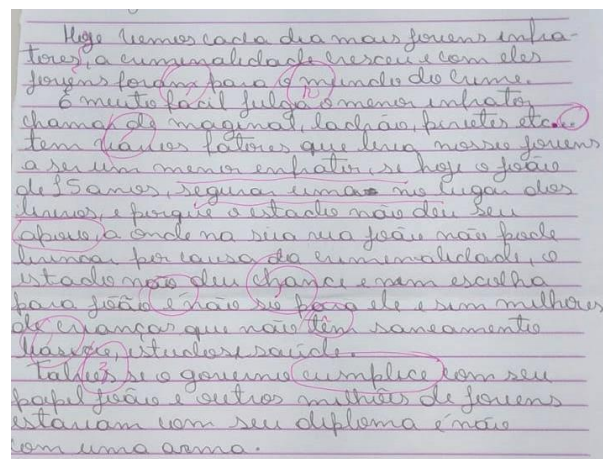 Hoje vemos cada dia mais jovens infra-
tores, a criminalidade cresceu e com eles
jovens foram para o mundo do crime.
É muito facil julga o menor infrator,
chamar de maginal, ladrão, pivetes etc..
tem varios fatores que leva nossos jovens
a ser um menor enfrator, se hoje o joão
de 15 anos, segurar uma no lugar dos
livros, e porque o estado não deu seu
apoio, a onde na sua rua joão não pode
brincar por causa da criminalidade, o
estado não deu chance e nem escolha
para joão e não so para ele e sim milhões
de crianças que não têm saneamento
básico, estudos, saúde.
Talves se o governo cumplice com seu
papel joão e outros milhões de jovens
estariam com seu diploma e não
com uma arma.